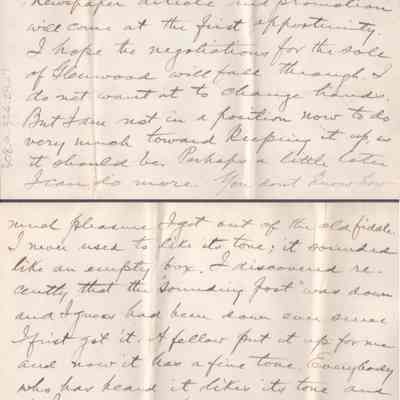 Newspaper article and promotion
will come at the first opportunity.
I hope the negotiations for the sale
of Glenwood will fall through. I
do not want it to change hands.
But I am not in a position now to do
very much toward keeping it up, as
it should be. Perhaps a little later
I can do more. You don't know how
much pleasure I got out of the old fiddle.
I never used to like its tone; it sounded
like an empty box. I discovered re-
cently that the "sounding post" was down
and I guess had been down ever since
I first got it. A fellow put it up for me
and now it has a fine tone. Everybody
who has heard it likes its tone and